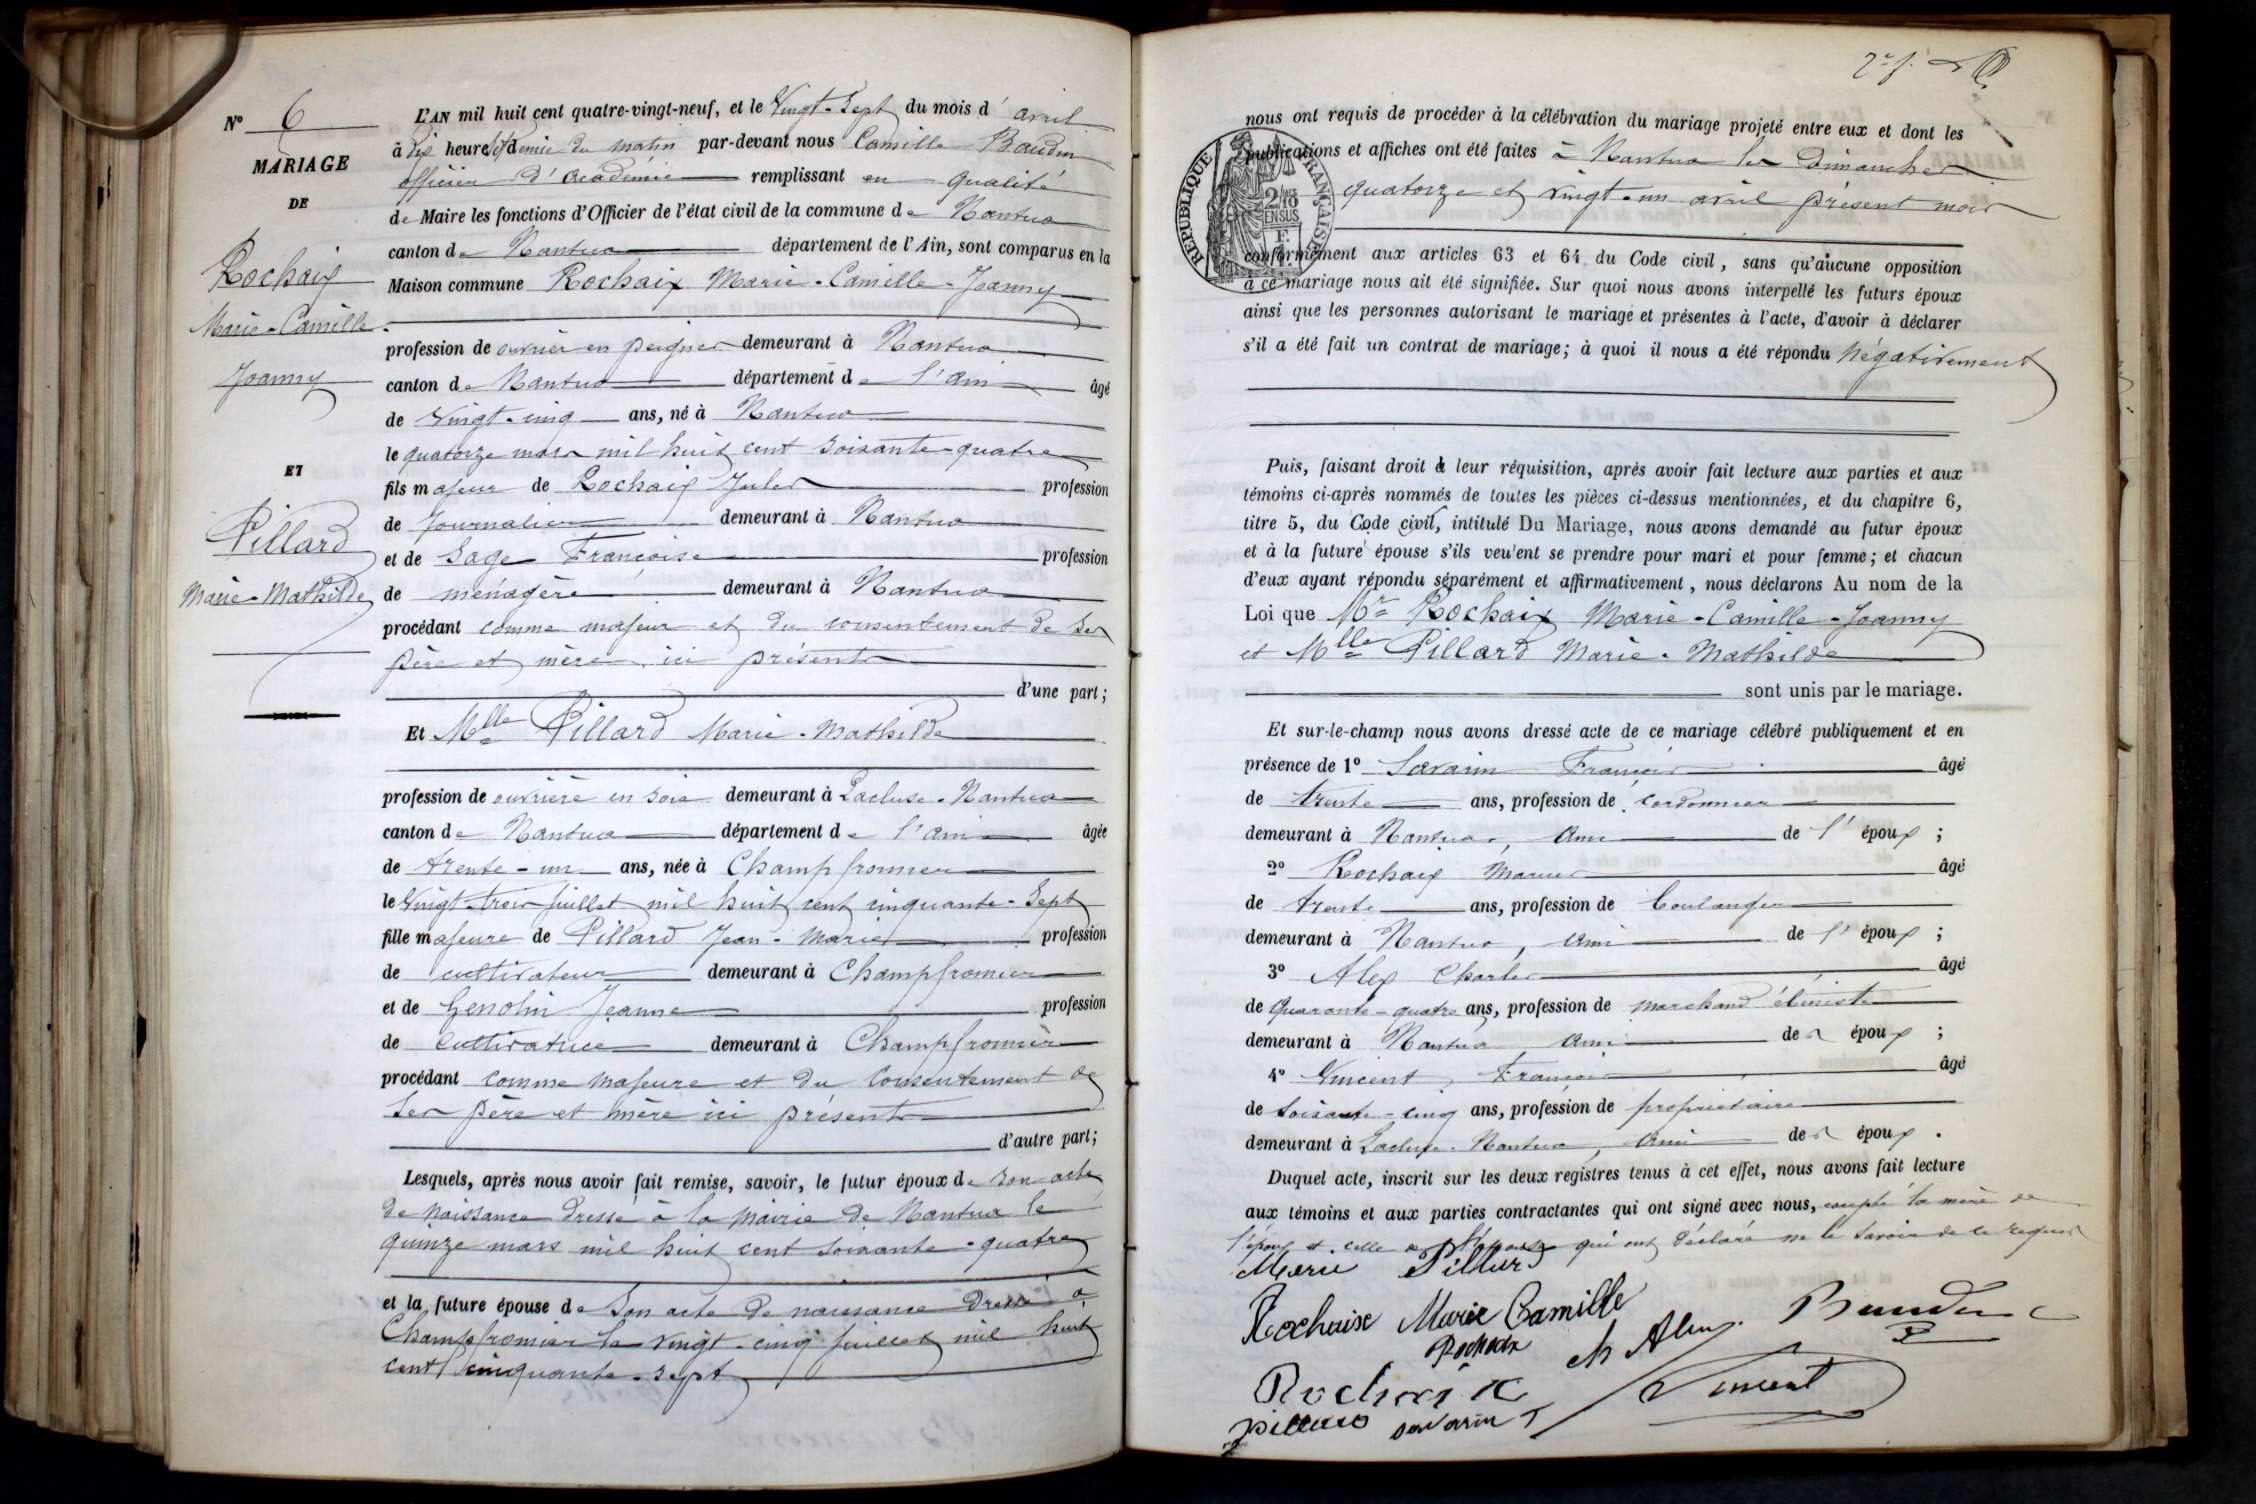 N° 6
MARIAGE
DE
Rochaix
Marie-Camille-
Joanny
ET
Pillard
Marie-Mathilde
L'AN mil huit cent quatre-vingt-neuf, et le Vingt-Sept du mois d'avril
à dix heures et demie du matin par-devant nous Camille Baudin
officier d'académie remplissant en qualité
de Maire les fonctions d'Officier de l'état civil de la commune de Nantua
canton de Nantua département de l'Ain, sont comparus en la
Maison commune Rochaix Marie-Camille-Joanny
profession de ouvrier en peignes demeurant à Nantua
canton de Nantua département de l'ain âgé
de Vingt-cinq ans, né à Nantua
le quatorze mars mil huit cent soixante-quatre
fils majeur de Rochaix Jules profession
de Journalier demeurant à Nantua
et de Sage Françoise profession
de ménagère demeurant à Nantua
procédant comme majeur et du consentement de ses
père et mère ici présents
d'une part;
Et Mlle Pillard Marie-Mathilde
profession de ouvrière en soie demeurant à Lacluse-Nantua
canton de Nantua département de l'ain âgée
de trente-un ans, née à Champfromier
le Vingt-trois juillet mil huit cent cinquante-Sept
fille majeure de Pillard Jean-Marie profession
de cultivateur demeurant à Champfromier
et de Genolin Jeanne profession
de Cultivatrice demeurant à Champfromier
procédant comme majeure et du Consentement de
Ses père et mère ici présents
d'autre part;
Lesquels, après nous avoir fait remise, savoir, le futur époux de son acte
de naissance dressé à la Mairie de Nantua le
quinze mars mil huit cent soixante-quatre
et la future épouse de Son acte de naissance dressé à
Champfromier le vingt-cinq juillet mil huit
cent cinquante-sept
nous ont requis de procéder à la célébration du mariage projeté entre eux et dont les
publications et affiches ont été faites à Nantua les Dimanches
quatorze et vingt-un avril présent mois
REPUBLIQUE FRANÇAISE
2/10 EN SUS
conformément aux articles 63 et 64 du Code civil, sans qu'aucune opposition
à ce mariage nous ait été signifiée. Sur quoi nous avons interpellé les futurs époux
ainsi que les personnes autorisant le mariage et présentes à l'acte, d'avoir à déclarer
s'il a été fait un contrat de mariage; à quoi il nous a été répondu Négativement
Puis, faisant droit à leur réquisition, après avoir fait lecture aux parties et aux
témoins ci-après nommés de toutes les pièces ci-dessus mentionnées, et du chapitre 6,
titre 5, du Code civil, intitulé Du Mariage, nous avons demandé au futur époux
et à la future épouse s'ils veulent se prendre pour mari et pour femme; et chacun
d'eux ayant répondu séparément et affirmativement, nous déclarons Au nom de la
Loi que Mr Rochaix Marie-Camille-Joanny
et Mlle Pillard Marie-Mathilde
sont unis par le mariage.
Et sur-le-champ nous avons dressé acte de ce mariage célébré publiquement et en
présence de 1° Savarin François âgé
de trente ans, profession de cordonnier
demeurant à Nantua, ami de l'époux;
2° Rochaix Marius âgé
de trente ans, profession de boulanger
demeurant à Nantua, ami de l'époux;
3° Alex Charles âgé
de Quarante-quatre ans, profession de marchand ébéniste
demeurant à Nantua ami des époux;
4° Vincent, François âgé
de Soixante-cinq ans, profession de propriétaire
demeurant à Lacluse-Nantua, ami des époux.
Duquel acte, inscrit sur les deux registres tenus à cet effet, nous avons fait lecture
aux témoins et aux parties contractantes qui ont signé avec nous, excepté la mère de
l'époux et celle de l'épouse qui ont déclaré ne le savoir de ce requis
Marie Pillard
Rochaix Marie Camille
Baudin
Rochaix
ch Alex
Rochaix
Vincent
pillard
savarin